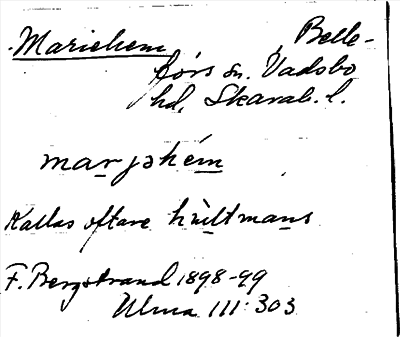 Mariehem, Belle-
fors sn. Vadsbo
hd, Skarab. l.
marjəhém
Kallas oftare hùltmans
F. Bergstrand 1898-99
Ulma 111:303